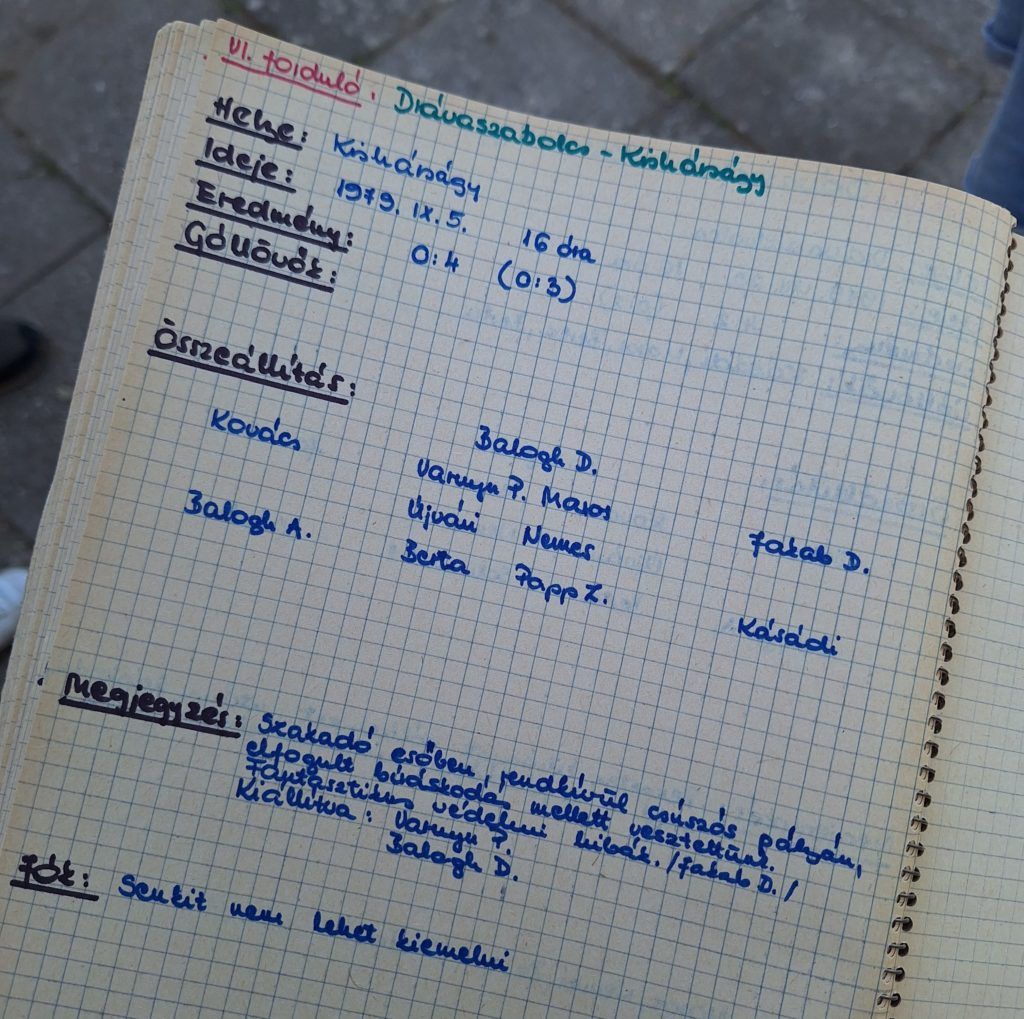 VI. forduló. Drávaszabolcs - Kishárságy
Helye: Kishárságy
Ideje: 1979. IX. 5. 16 óra
Eredmény: 0:4 (0:3)
Góllövők:
Összeállítás:
Balogh D.
Kovács Varnyu P. Maros Jakab D.
Újvári Nemes
Balogh A. Berta Papp Z. Kásádi
Megjegyzés: Szakadó esőben, rendkívül csúszós pályán,
elfogult bíráskodás mellett vesztettünk.
Fantasztikus védelmi hibák. /Jakab D./
Kiállítva: Varnyu P.
Balogh D.
Jók: Senkit nem lehet kiemelni